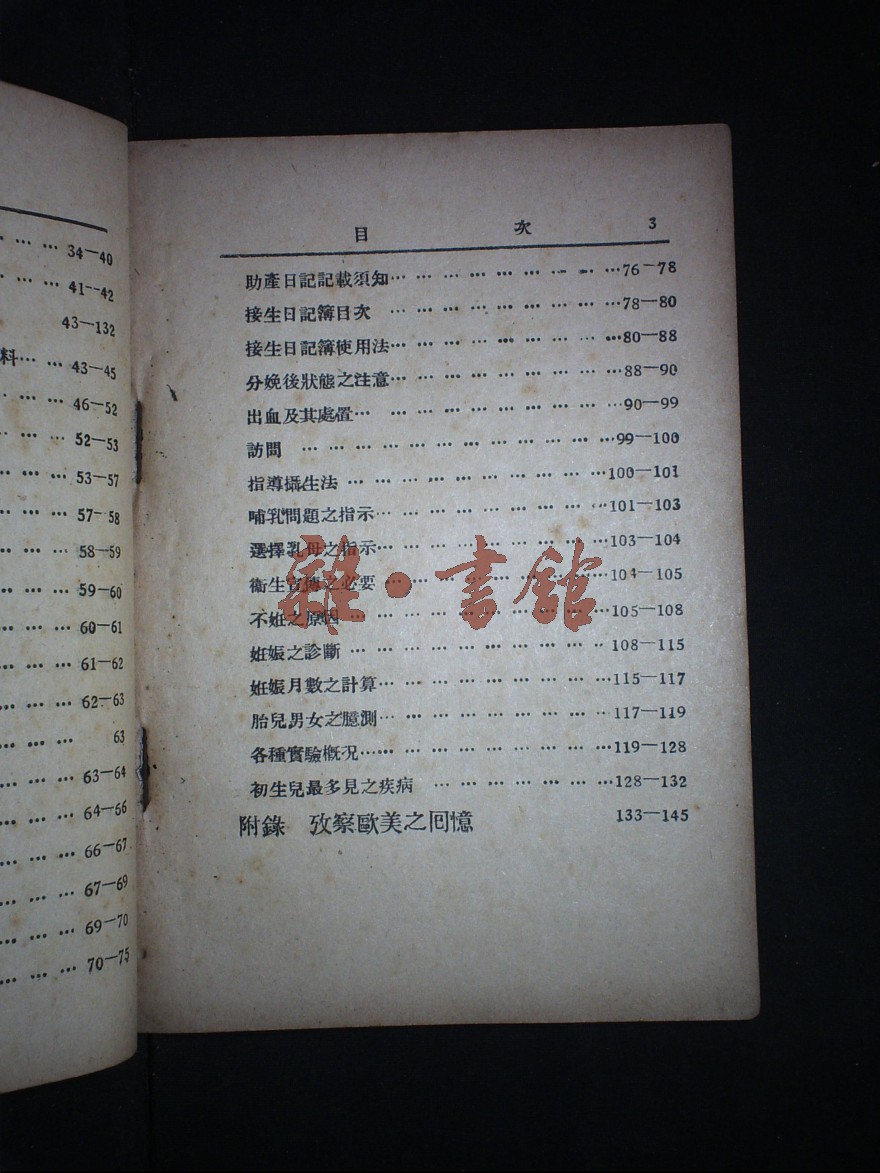 … … 34—40
… … 41—42
43—132
料… … 43—45
… … … 46—52
… … … 52—53
… … … 53—57
… … … 57—58
… … … 58—59
… … … 59—60
… … … 60—61
… … … 61—62
… … … 62—63
… … … 63
… … … 63—64
… … … 64—66
… … … 66—67
… … … 67—69
… … … 69—70
… … … 70—75
目 次 3
助產日記記載須知… … … … … … … …76—78
接生日記簿目次 … … … … … … … …78—80
接生日記簿使用法… … … … … … … …80—88
分娩後狀態之注意… … … … … … … …88—90
出血及其處置… … … … … … … … …90—99
訪問 … … … … … … … … … …99—100
指導攝生法 … … … … … … … … …100—101
哺乳問題之指示… … … … … … … …101—103
選擇乳母之指示… … … … … … … …103—104
衞生宣傳之必要 … … … … … … …104—105
不姙之原因 … … … … … … … … …105—108
姙娠之診斷 … … … … … … … … …108—115
姙娠月數之計算… … … … … … … …115—117
胎兒男女之臆測… … … … … … … …117—119
各種實驗概況… … … … … … … … …119—128
初生兒最多見之疾病 … … … … … …128—132
附錄 攷察歐美之回憶 133—145
雜·書館